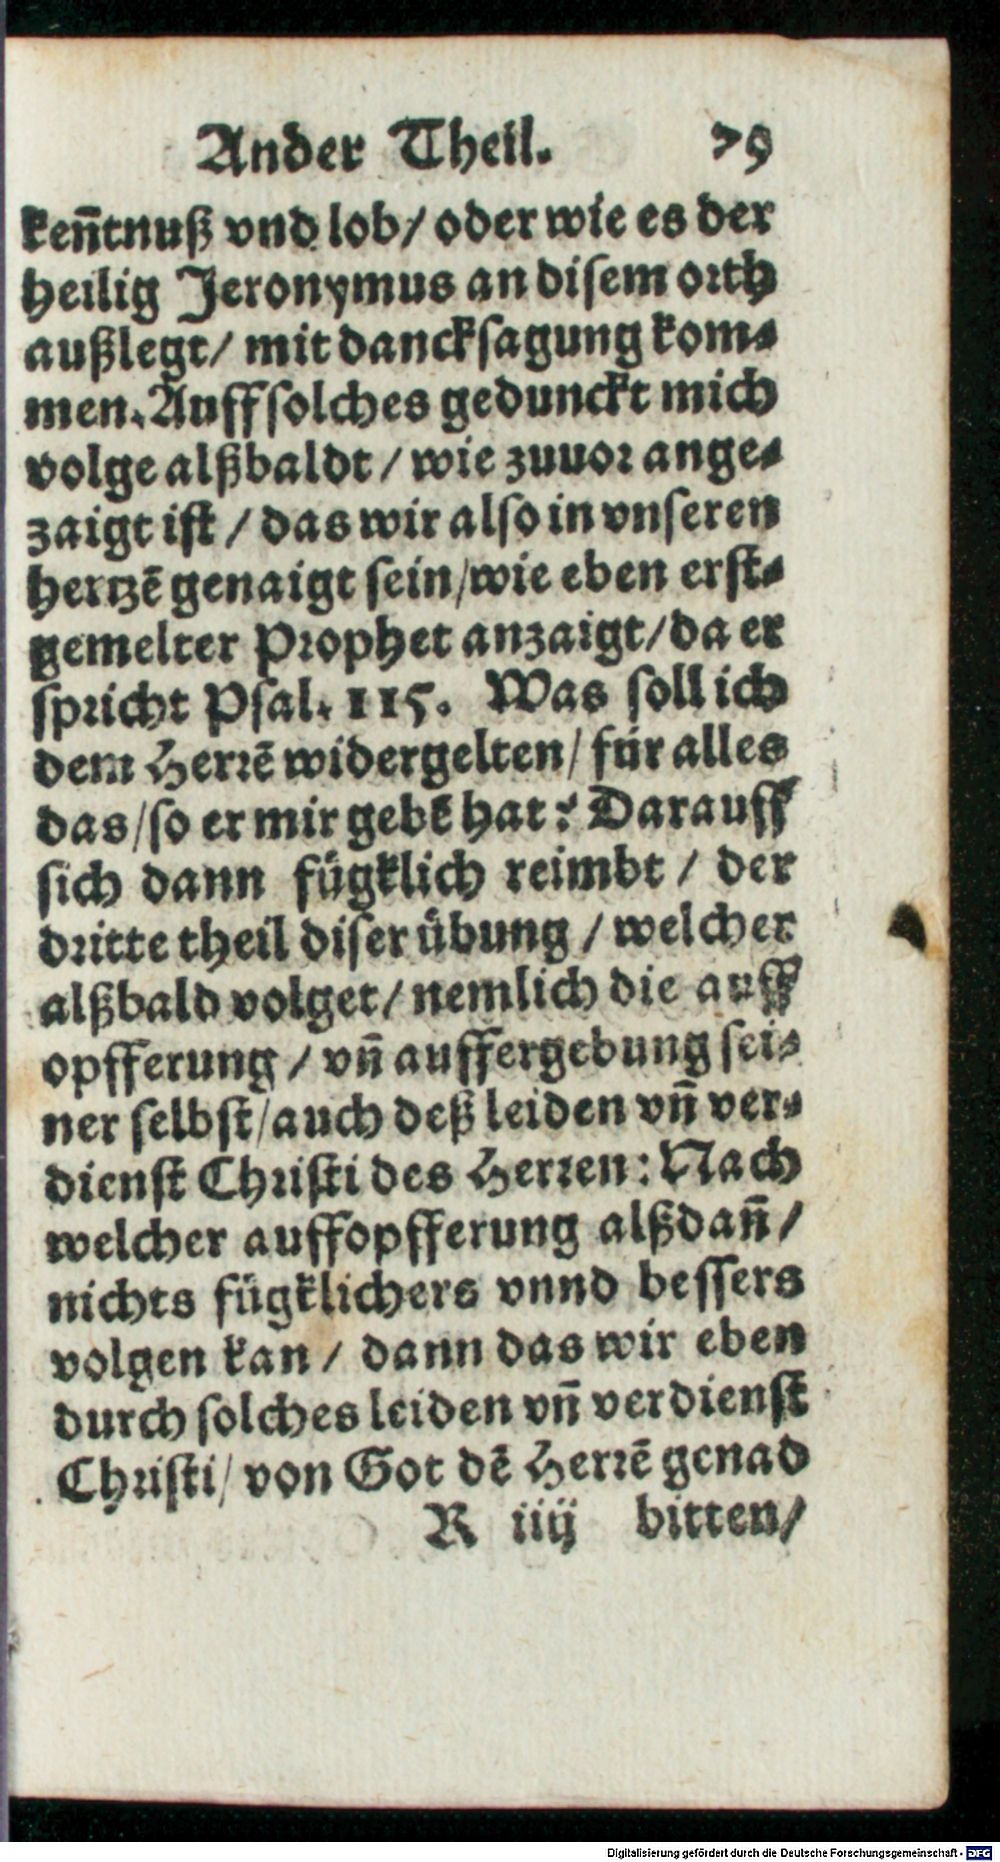 Ander Theil. 79
keñtnuß vnd lob/ oder wie es der
heilig Jeronymus an disem orth
außlegt/ mit dancksagung kom-
men. Auff solches gedunckt mich
volge alßbaldt / wie zuuor ange-
zaigt ist / das wir also in vnseren
hertzē genaigt sein/wie eben erst-
gemelter Prophet anzaigt/da er
spricht Psal. 115. Was soll ich
dem Herrē widergelten/ für alles
das/so er mir gebē hat? Darauff
sich dann fügklich reimbt / der
dritte theil diser übung / welcher
alßbald volget/ nemlich die auff
opfferung / vñ auffergebung sei-
ner selbst/auch deß leiden vñ ver-
dienst Christi des Herren: Nach
welcher auffopfferung alßdañ/
nichts fügklichers vnnd bessers
volgen kan / dann das wir eben
durch solches leiden vñ verdienst
Christi/ von Got dē Herrē genad
R iiij bitten/
Digitalisierung gefördert durch die Deutsche Forschungsgemeinschaft - DFG